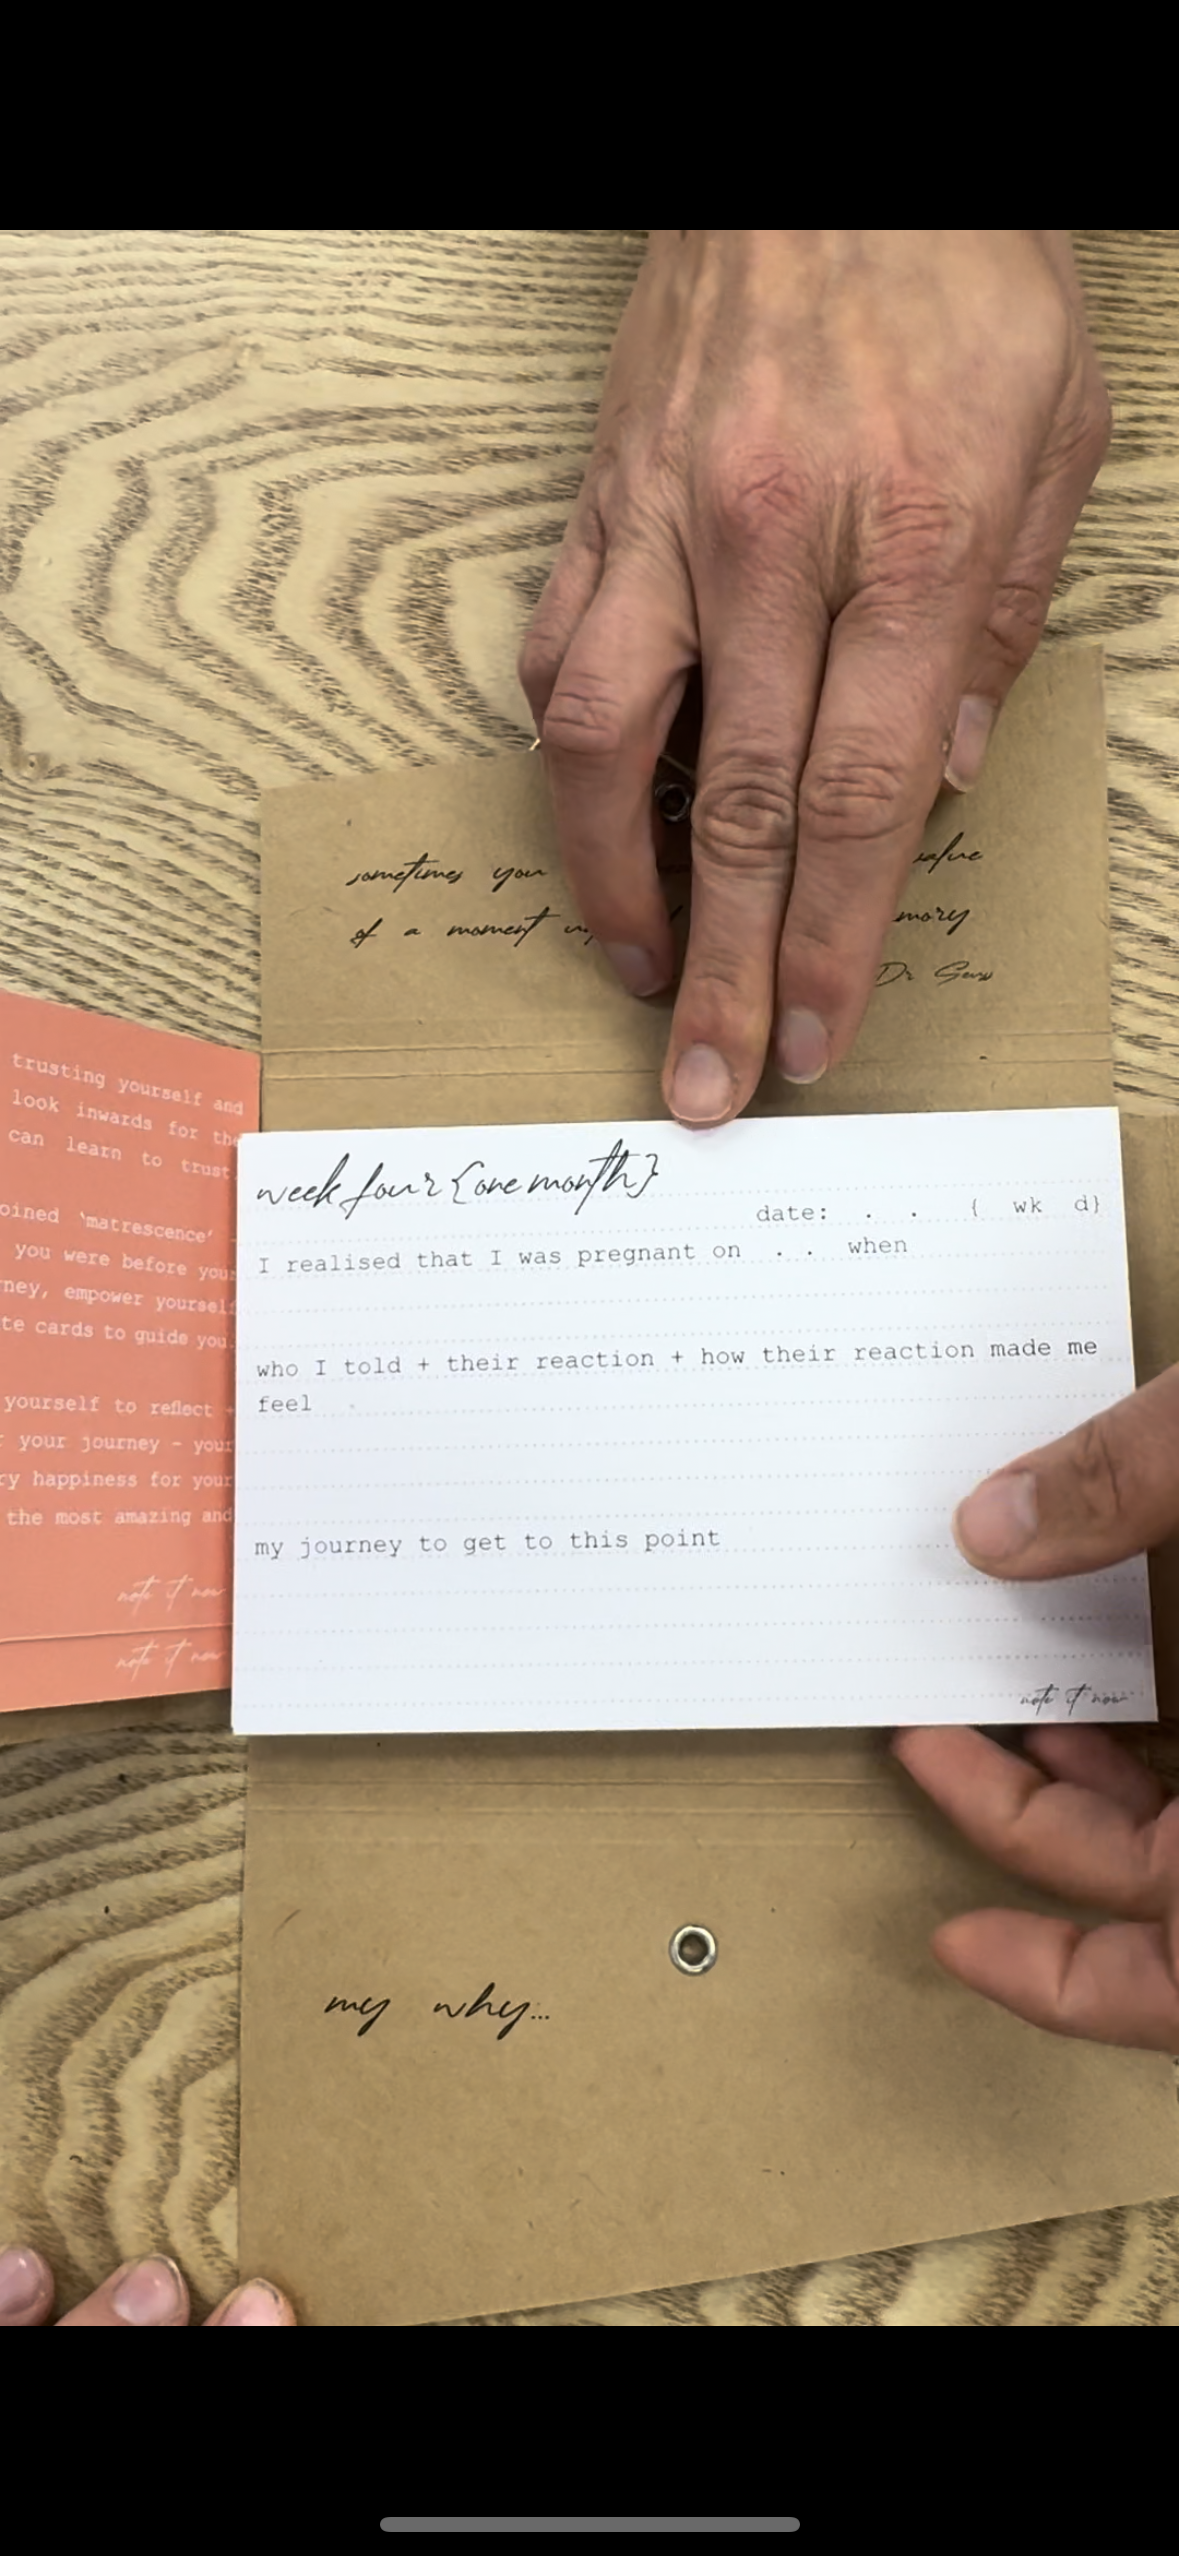 sometimes you value
of a moment
Dr Seuss
trusting yourself and
look inwards for the
can learn to trust
'matrescence' -
you were before your
empower yourself
cards to guide you.
yourself to reflect +
your journey - your
happiness for your
the most amazing and
note it now
note it now
week four {one month}
date: . . { wk d}
I realised that I was pregnant on . . when
who I told + their reaction + how their reaction made me
feel
my journey to get to this point
note it now
my why...